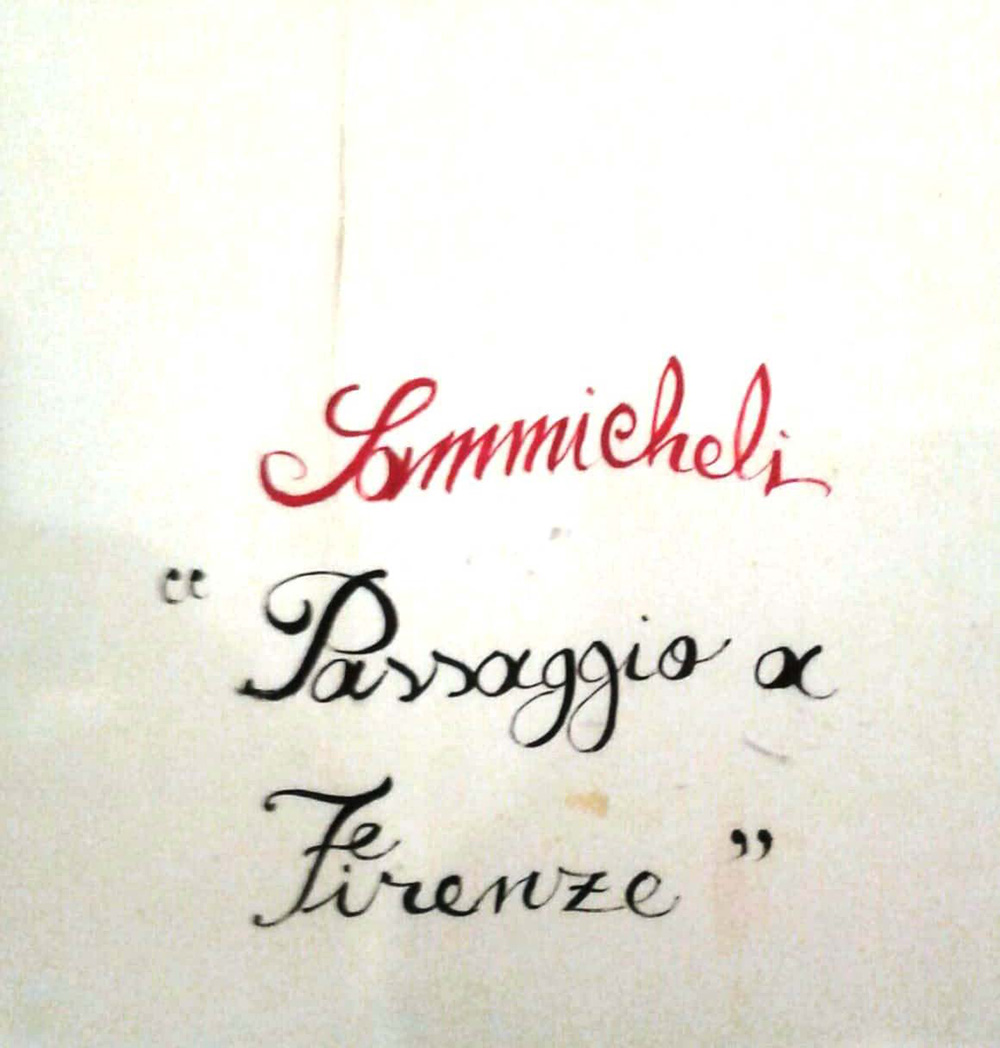 Sammicheli
“Passaggio a
Firenze”